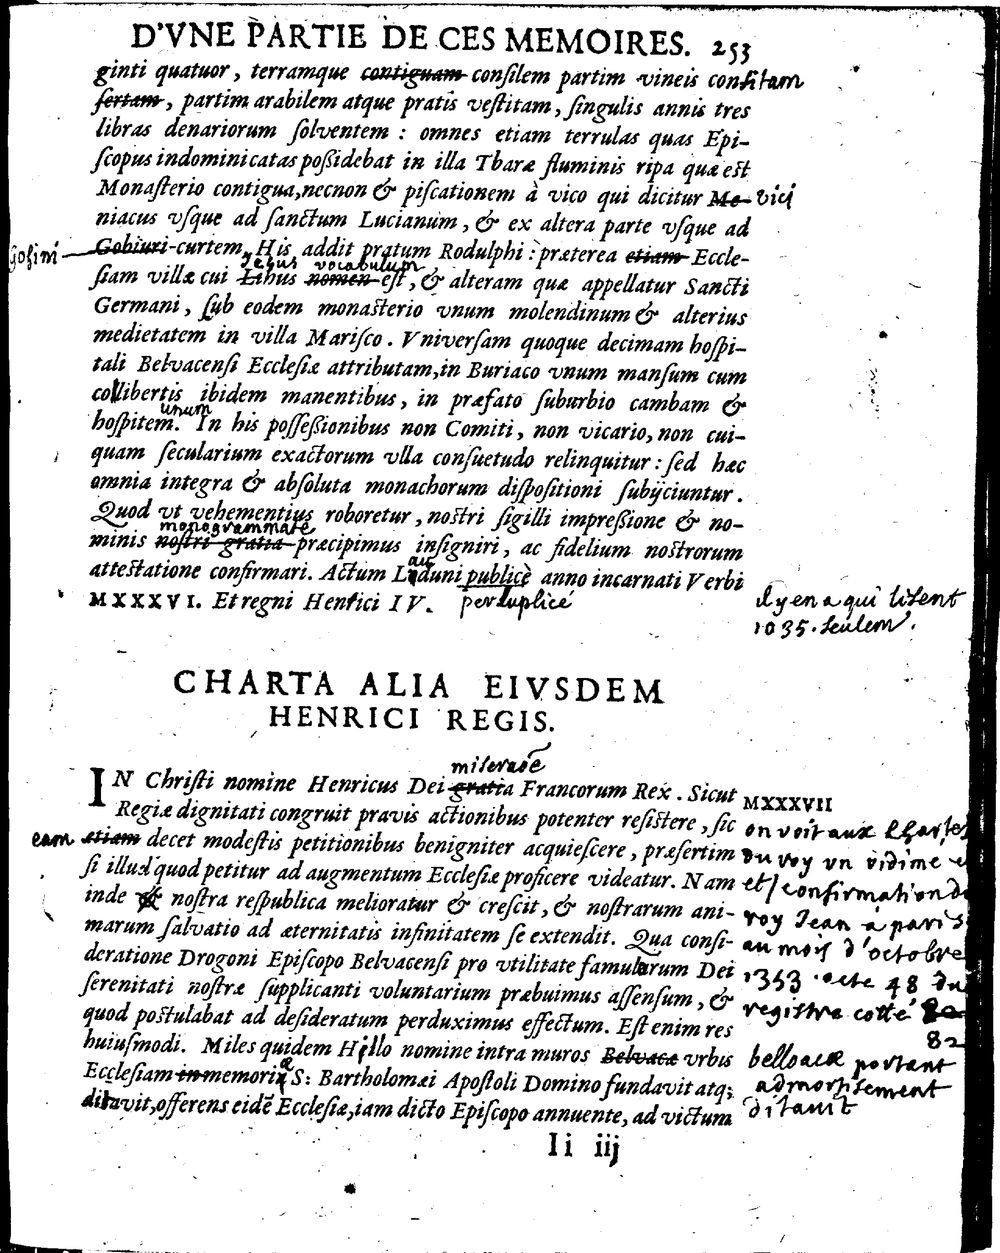 D'VNE PARTIE DE CES MEMOIRES. 253
ginti quatuor, terramque contiguam conſilem partim vineis conſitam
ſertam, partim arabilem atque pratis veſtitam, ſingulis annis tres
libras denariorum ſolventem : omnes etiam terrulas quas Epi-
ſcopus indominicatas poßidebat in illa Tharæ fluminis ripa quæ eſt
Monaſterio contigua, necnon & piſcationem à vico qui dicitur Me- vici
niacus vſque ad ſanctum Lucianum, & ex altera parte vſque ad
Goſini Gobiuri-curtem. His addit pratum Rodulphi : præterea etiam Eccle-
vocabulum
ſiam villæ cui Libus nomen eſt, & alteram quæ appellatur Sancti
Germani, ſub eodem monaſterio vnum molendinum & alterius
medietatem in villa Mariſco. Vniverſam quoque decimam hoſpi-
tali Belvacenſi Eccleſiæ attributam, in Buriaco vnum manſum cum
collibertis ibidem manentibus, in præfato ſuburbio cambam &
unum
hoſpitem. In his poſſeßionibus non Comiti, non vicario, non cui-
quam ſecularium exactorum vlla conſuetudo relinquitur : ſed hæc
omnia integra & abſoluta monachorum diſpoſitioni ſubijciuntur.
Quod vt vehementius roboretur, noſtri ſigilli impreßione & no-
monogrammate
minis noſtri gratia præcipimus inſigniri, ac fidelium noſtrorum
au
atteſtatione confirmari. Actum Laduni publicè anno incarnati Verbi
MXXXVI. Et regni Henrici IV. per duplicé
il y en a qui liſent
1035. seulem.
CHARTA ALIA EIVSDEM
HENRICI REGIS.
miseraõe
IN Chriſti nomine Henricus Dei gratia Francorum Rex. Sicut
MXXXVII
Regiæ dignitati congruit pravis actionibus potenter reſiſtere, ſic
eam etiam decet modeſtis petitionibus benigniter acquieſcere, præſertim
ſi illud quod petitur ad augmentum Eccleſiæ proficere videatur. Nam
inde & noſtra reſpublica melioratur & creſcit, & noſtrarum ani-
marum ſalvatio ad æternitatis infinitatem ſe extendit. Qua conſi-
deratione Drogoni Epiſcopo Belvacenſi pro vtilitate famularum Dei
ſerenitati noſtræ ſupplicanti voluntarium præbuimus aſſenſum, &
quod poſtulabat ad deſideratum perduximus effectum. Eſt enim res
huiuſmodi. Miles quidem Hello nomine intra muros Belvacæ vrbis
Eccleſiam in memoriæ S: Bartholomæi Apoſtoli Domino fundavit atq;
ditavit, offerens eidẽ Eccleſiæ, iam dicto Epiſcopo annuente, ad victum
on voit aux Chartes
du roy vn vidime e
et confirmation du
roy Jean à paris
au mois d'octobre
1353 . acte 48 du
registre cotté 80
82
belloacæ portant
admortisement
ditauit
Ii iij